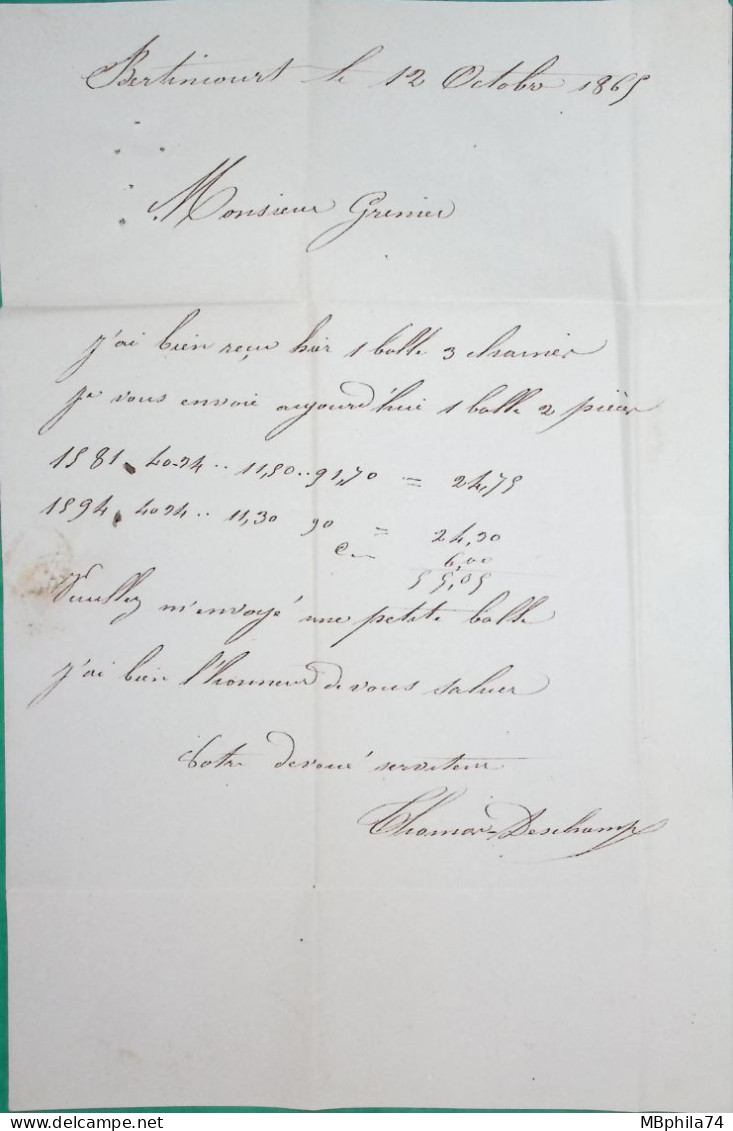 Bertincourt le 12 Octobre 1865
Monsieur Grenier
j'ai bien reçu hier 1 balle 3 chaines
je vous envoie aujourd'hui 1 balle 2 pièces
1581 . 40-24 .. 11,50 .. 91,70 = 24,75
1594 . 4024 .. 11,30 90 = 24,30
6,00
55,05
Veuillez m'envoyé une petite balle
j'ai bien l'honneur de vous saluer
Votre dévoué serviteur
Thomas-Deschamps
MBphila74